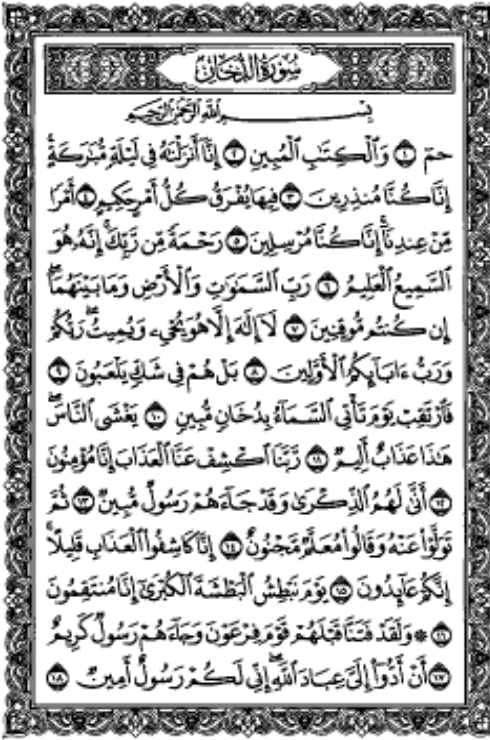 سُورَةُ الدُّخَانِ
بِسْمِ اللَّهِ الرَّحْمَٰنِ الرَّحِيمِ
حمٓ ١ وَالْكِتَابِ الْمُبِينِ ٢ إِنَّا أَنزَلْنَاهُ فِي لَيْلَةٍ مُّبَارَكَةٍ ۚ
إِنَّا كُنَّا مُنذِرِينَ ٣ فِيهَا يُفْرَقُ كُلُّ أَمْرٍ حَكِيمٍ ٤ أَمْرًا
مِّنْ عِندِنَا ۚ إِنَّا كُنَّا مُرْسِلِينَ ٥ رَحْمَةً مِّن رَّبِّكَ ۚ إِنَّهُ هُوَ
السَّمِيعُ الْعَلِيمُ ٦ رَبِّ السَّمَٰوَٰتِ وَالْأَرْضِ وَمَا بَيْنَهُمَا ۖ
إِن كُنتُم مُّوقِنِينَ ٧ لَا إِلَٰهَ إِلَّا هُوَ يُحْيِي وَيُمِيتُ ۖ رَبُّكُمْ
وَرَبُّ ءَابَآئِكُمُ الْأَوَّلِينَ ٨ بَلْ هُمْ فِي شَكٍّ يَلْعَبُونَ ٩
فَارْتَقِبْ يَوْمَ تَأْتِي السَّمَآءُ بِدُخَانٍ مُّبِينٍ ١٠ يَغْشَى النَّاسَ ۖ
هَٰذَا عَذَابٌ أَلِيمٌ ١١ رَّبَّنَا اكْشِفْ عَنَّا الْعَذَابَ إِنَّا مُؤْمِنُونَ
١٢ أَنَّىٰ لَهُمُ الذِّكْرَىٰ وَقَدْ جَآءَهُمْ رَسُولٌ مُّبِينٌ ١٣ ثُمَّ
تَوَلَّوْا۟ عَنْهُ وَقَالُوا۟ مُعَلَّمٌ مَّجْنُونٌ ١٤ إِنَّا كَاشِفُوا۟ الْعَذَابِ قَلِيلًا ۚ
إِنَّكُمْ عَآئِدُونَ ١٥ يَوْمَ نَبْطِشُ الْبَطْشَةَ الْكُبْرَىٰ إِنَّا مُنتَقِمُونَ
١٦ ۞ وَلَقَدْ فَتَنَّا قَبْلَهُمْ قَوْمَ فِرْعَوْنَ وَجَآءَهُمْ رَسُولٌ كَرِيمٌ
١٧ أَنْ أَدُّوٓا۟ إِلَيَّ عِبَادَ اللَّهِ ۖ إِنِّي لَكُمْ رَسُولٌ أَمِينٌ ١٨